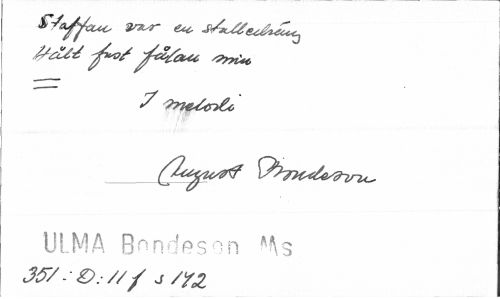 Staffan var en stalledräng
Hålt fast fålan min
I melodi
August Bondeson
ULMA Bondeson Ms
351:D:11 f s 172